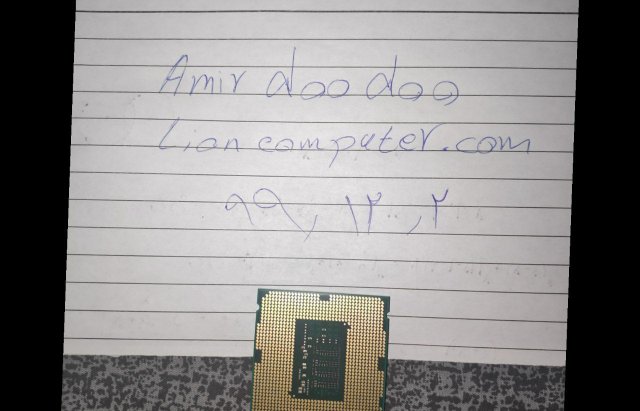 Amir doo doo
Lion computer.com
۹۹, ۱۲, ۲